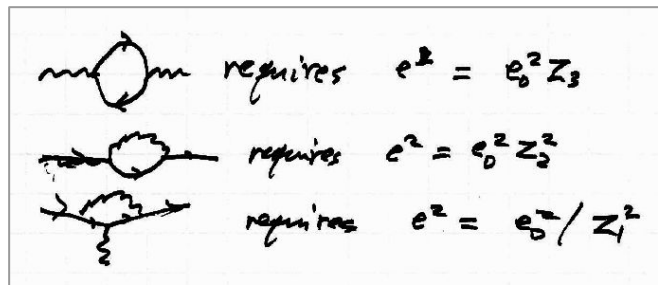 requires e² = e₀² Z₃
requires e² = e₀² Z₂²
requires e² = e₀² / Z₁²